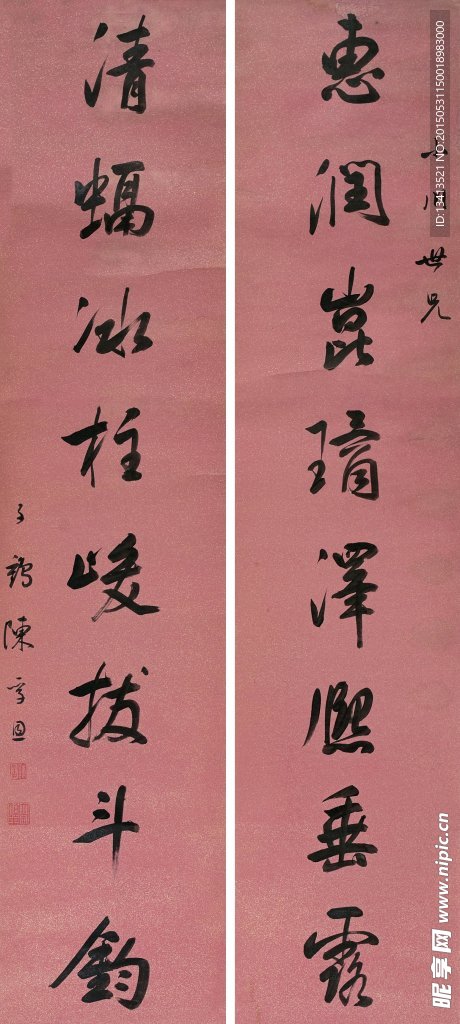 惠润崑瑃泽熙垂露
世兄
清蝹冰柱峻拔斗鈞
子鹤陈孚恩
ID:13413521 NO:20150531150018983000
昵享网 www.nipic.cn